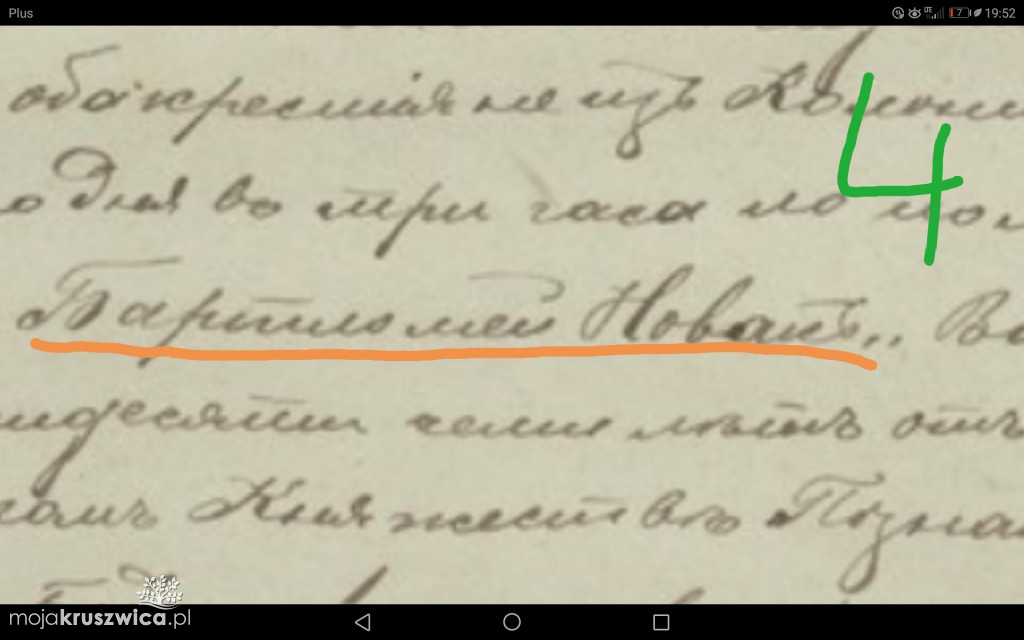 Plus 7 19:52
оба крестьяне изъ Колони
4
о дня въ три часа по пол
Бартломей Новакъ,, Во
идесяти семи лѣтъ отъ
Княжество Позна
mojakruszwica.pl